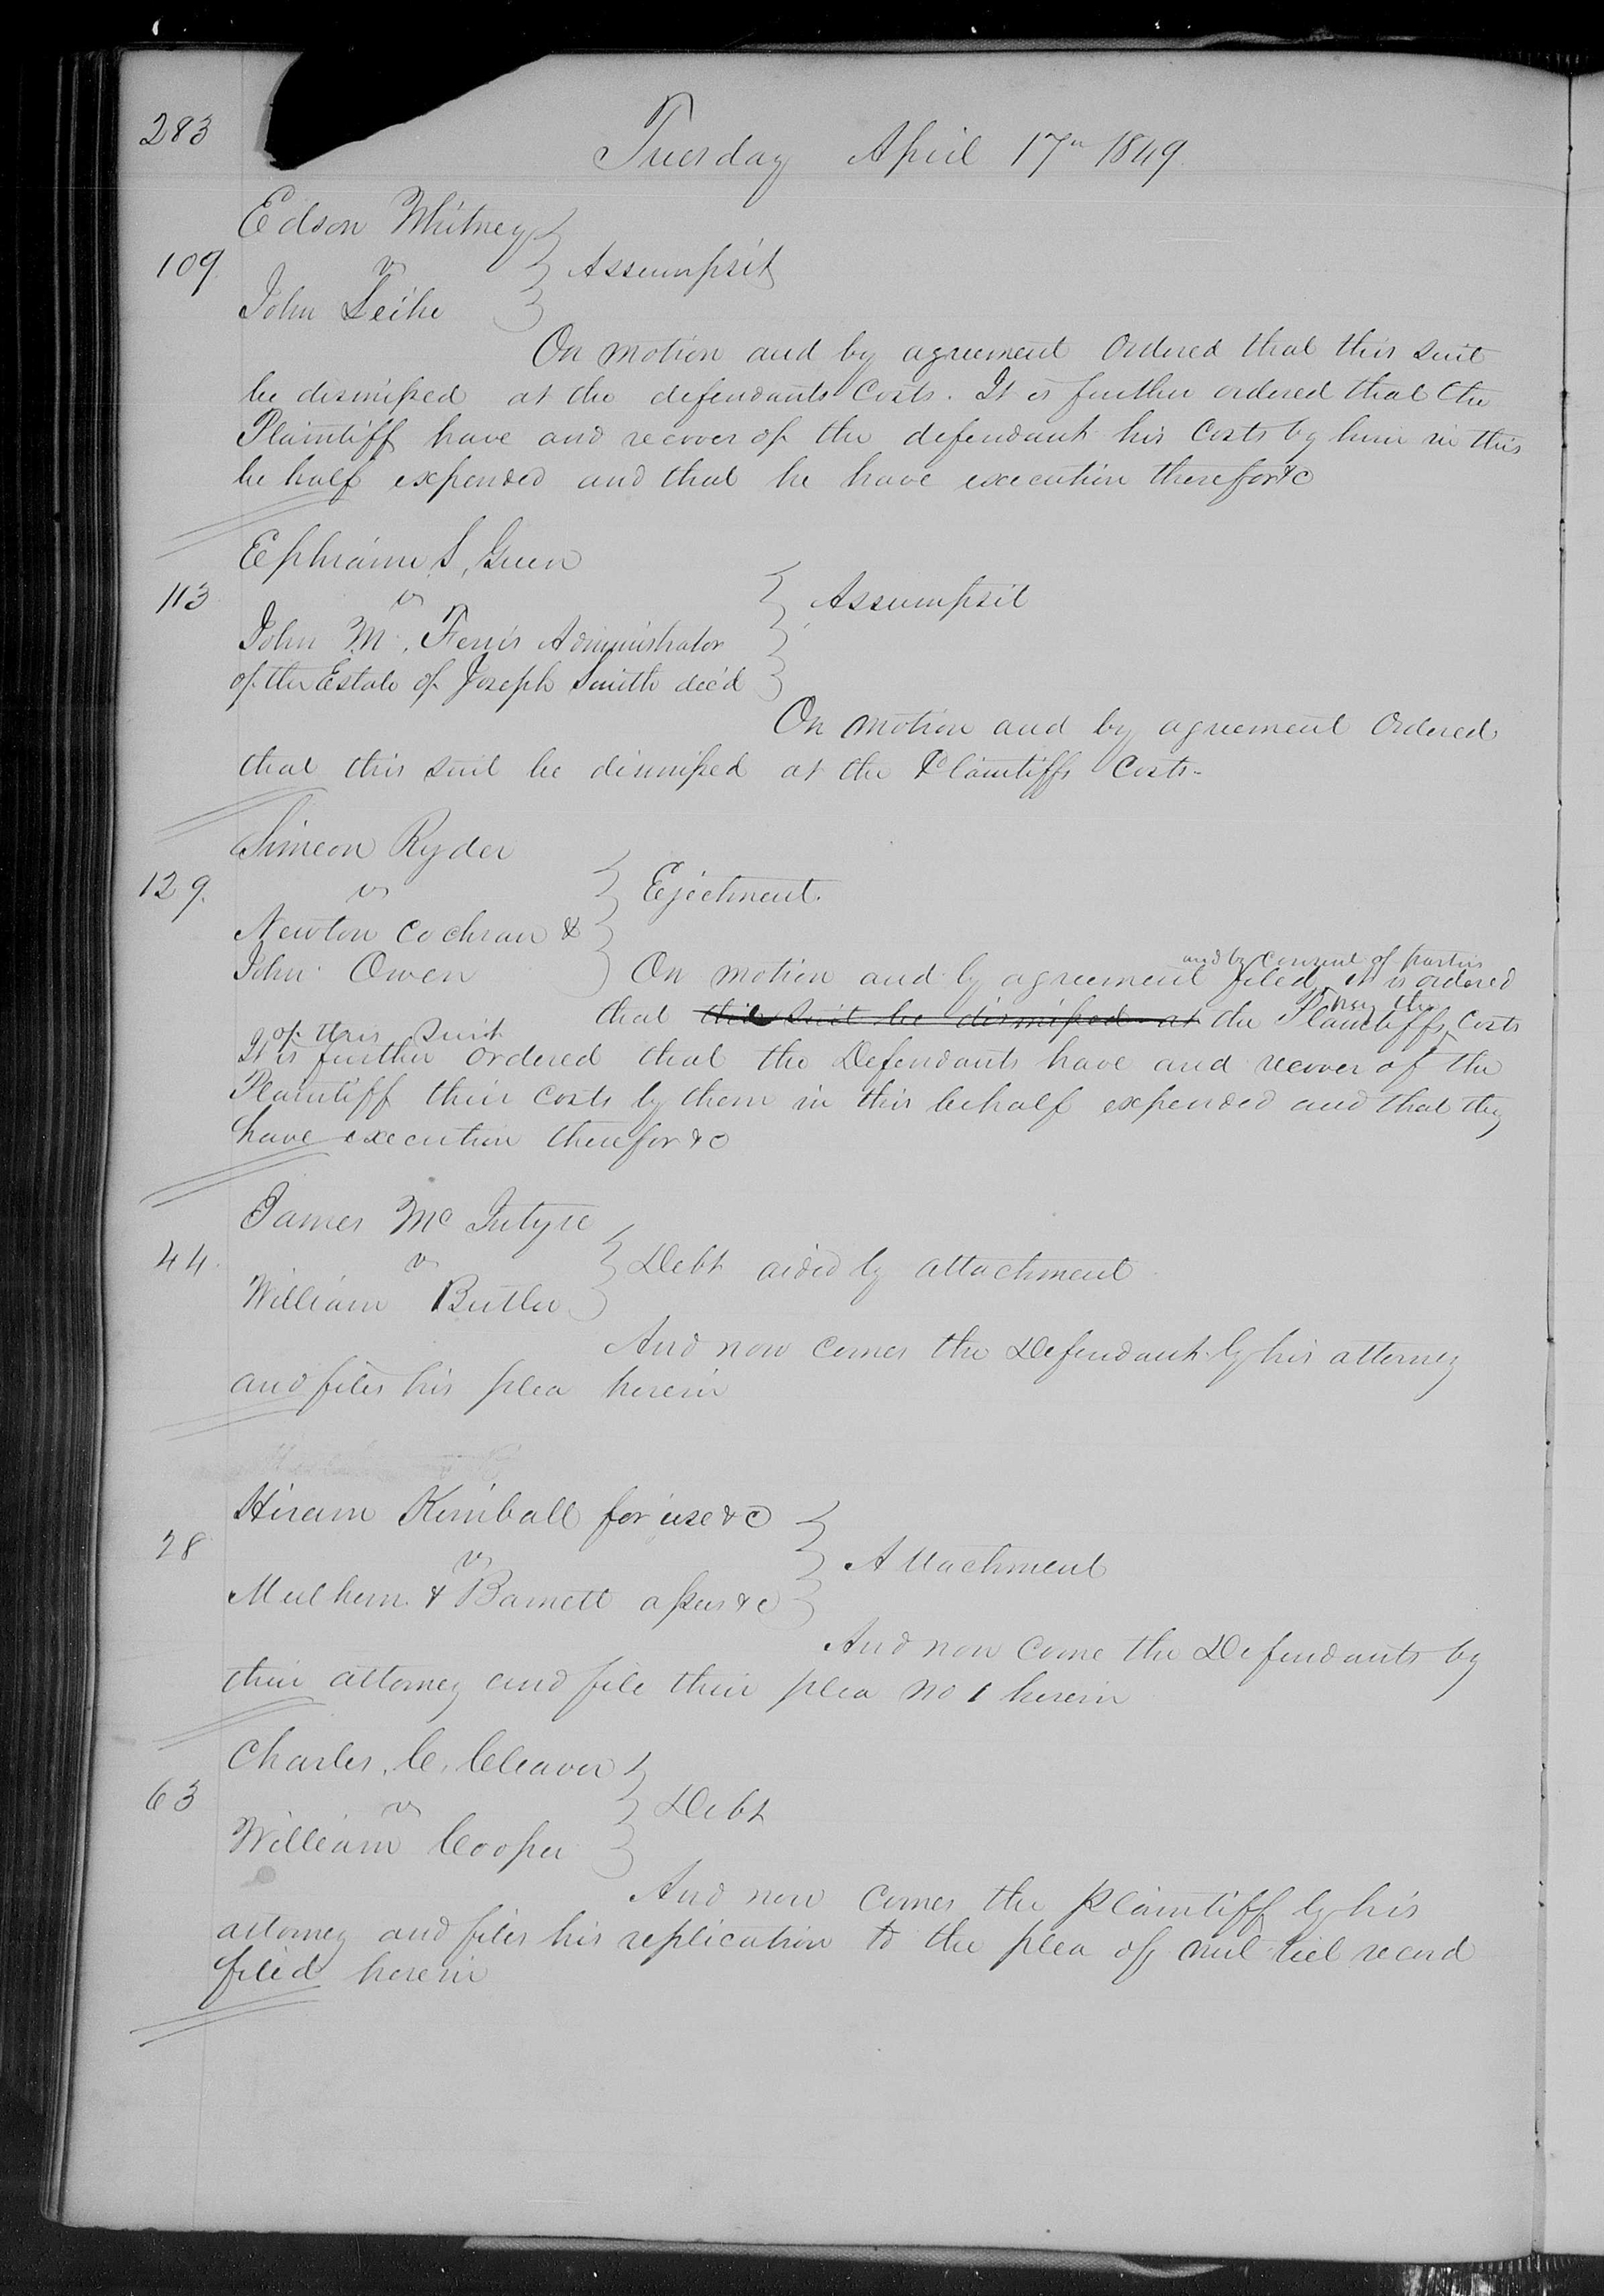 283
Tuesday April 17th 1849.
Edson Whitney
109. vs } Assumpsit
John Leihe
On motion and by agreement Ordered that this suit
be dismissed at the defendants Costs. It is further ordered that the
Plaintiff have and recover of the defendant his Costs by him in this
be half expended and that he have execution therefor &c
Ephraim S. Green
113 vs } Assumpsit
John M. Ferris Administrator
of the Estate of Joseph Smith dec'd
On motion and by agreement Ordered
that this suit be dismissed at the Plaintiffs Costs-
Simeon Ryder
129. vs } Ejectment.
Newton Cochran &
and by consent of parties
John Owen } On motion and by agreement filed, it is ordered
that this suit be dismissed at the Plaintiffs pay the Costs
of this suit
It is further ordered that the Defendants have and recover of the
Plaintiff their costs by them in this behalf expended and that they
have execution therefor &c
James McIntyre
44. vs } Debt aided by attachment
William Butler
And now comes the Defendant by his attorney
and files his plea herein
Hiram Kimball for use &c
28 vs } Attachment
Mulhern & Barnett assees &c
And now come the Defendants by
their attorney and file their plea No 1 herein
Charles, C, Cleaver
63 vs } Debt
William Cooper
And now comes the Plaintiff by his
attorney and files his replication to the plea of nul tiel record
filed herein